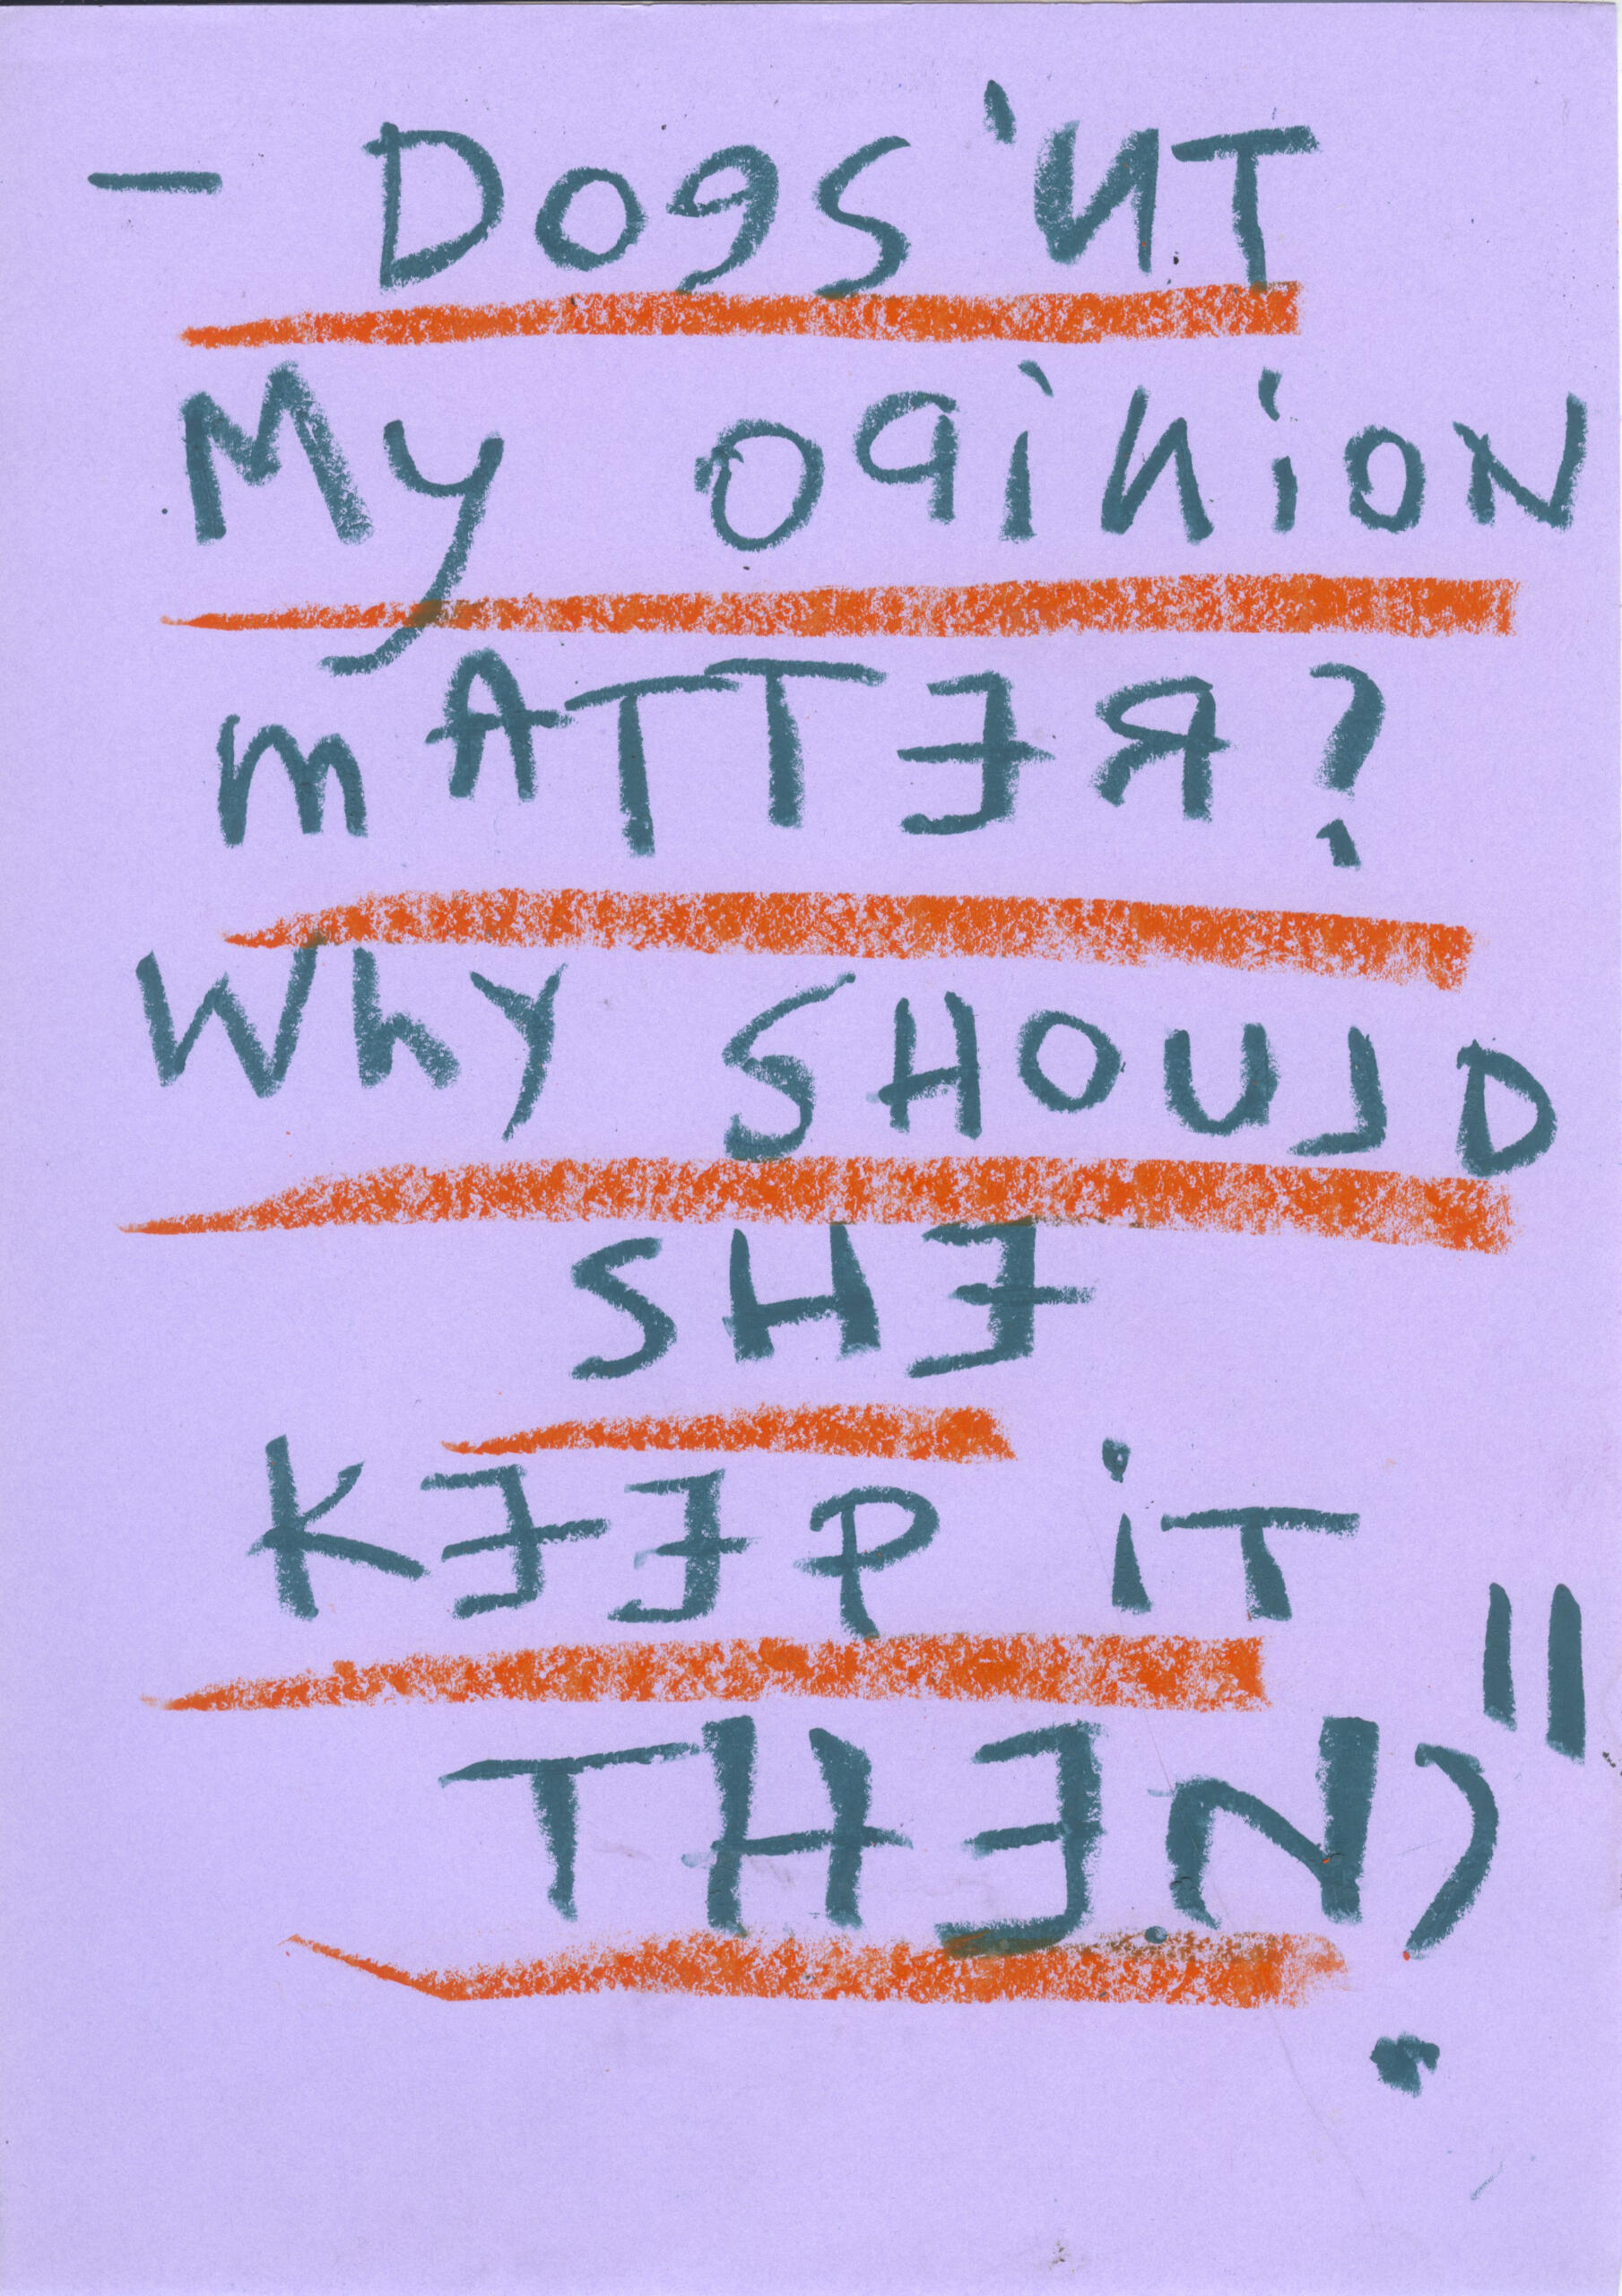 - Does'nt
My opinion
mATTER?
Why SHOULD
SHE
KEEP iT
THEN?"